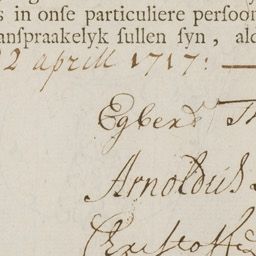 s in onse particuliere persoon
anspraakelyk sullen syn, ald
22 aprill 1717: —
Egber
Arnoldus
Christoffe